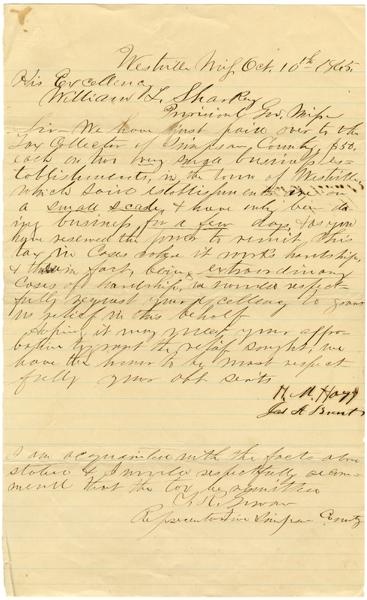 Westville Miss Oct. 10th 1865.
His Excellency
William L. Sharkey
Provisional Gov. Miss
Sir - We have just paid over to the
Tax Collector of Simpson County, $50,
each on two very small business es-
tablishments, in the town of Westville
which said establishments are on
a small scale, & have only been do
ing business for a few days, & as you
have reserved the power to remit, this
tax in cases where it works hardship,
& this in fact, being extraordinary
cases of hardship, we would respect-
fully request your Excellency to grant
us relief in this behalf
Hoping it may meet your appro-
bation to grant the relief sought, we
have the honor to be most respect
fully your obt servts
H. M.
Jas A
I am acquainted with the facts above
stated & I would respectfully recom-
mend that the tax be remitted
Representative Simpson County